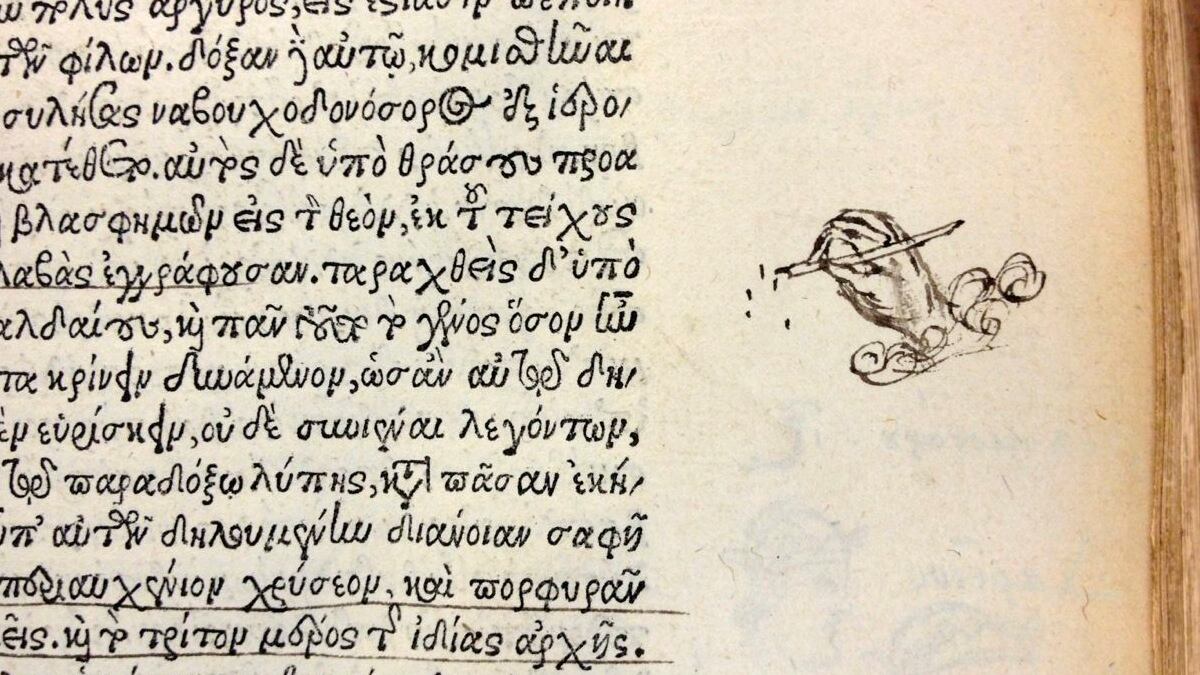 ἄργυρος, εἰς
τῶν φίλων. δόξαν δὲ αὐτῷ, κομισθῆναι
συλήσας ναβουχοδονόσορος ἐξ ἱερο/
κατέθετο. αὐτὸς δὲ ὑπὸ θράσους προα
βλασφημῶν εἰς τὸν θεὸν, ἐκ τοῦ τείχους
λαβὰς ἐγγράφουσαν. ταραχθεὶς δ’ ὑπὸ
αλδαίους, καὶ πᾶν τοῦτο τὸ γένος ὅσον ἦν
τα κρίνειν δυνάμενον, ὡς ἂν αὐτοῖς δη/
εὑρίσκειν, οὐδὲ συνιέναι λεγόντων,
τῷ παραδόξῳ λύπης, κατὰ πᾶσαν ἐκή/
ὑπ’ αὐτῶν δηλουμένην διάνοιαν σαφῆ
περιαυχένιον χρύσεον, καὶ πορφυρᾶν
εῖς. καὶ τὸ τρίτον μέρος τῆς ἰδίας ἀρχῆς.